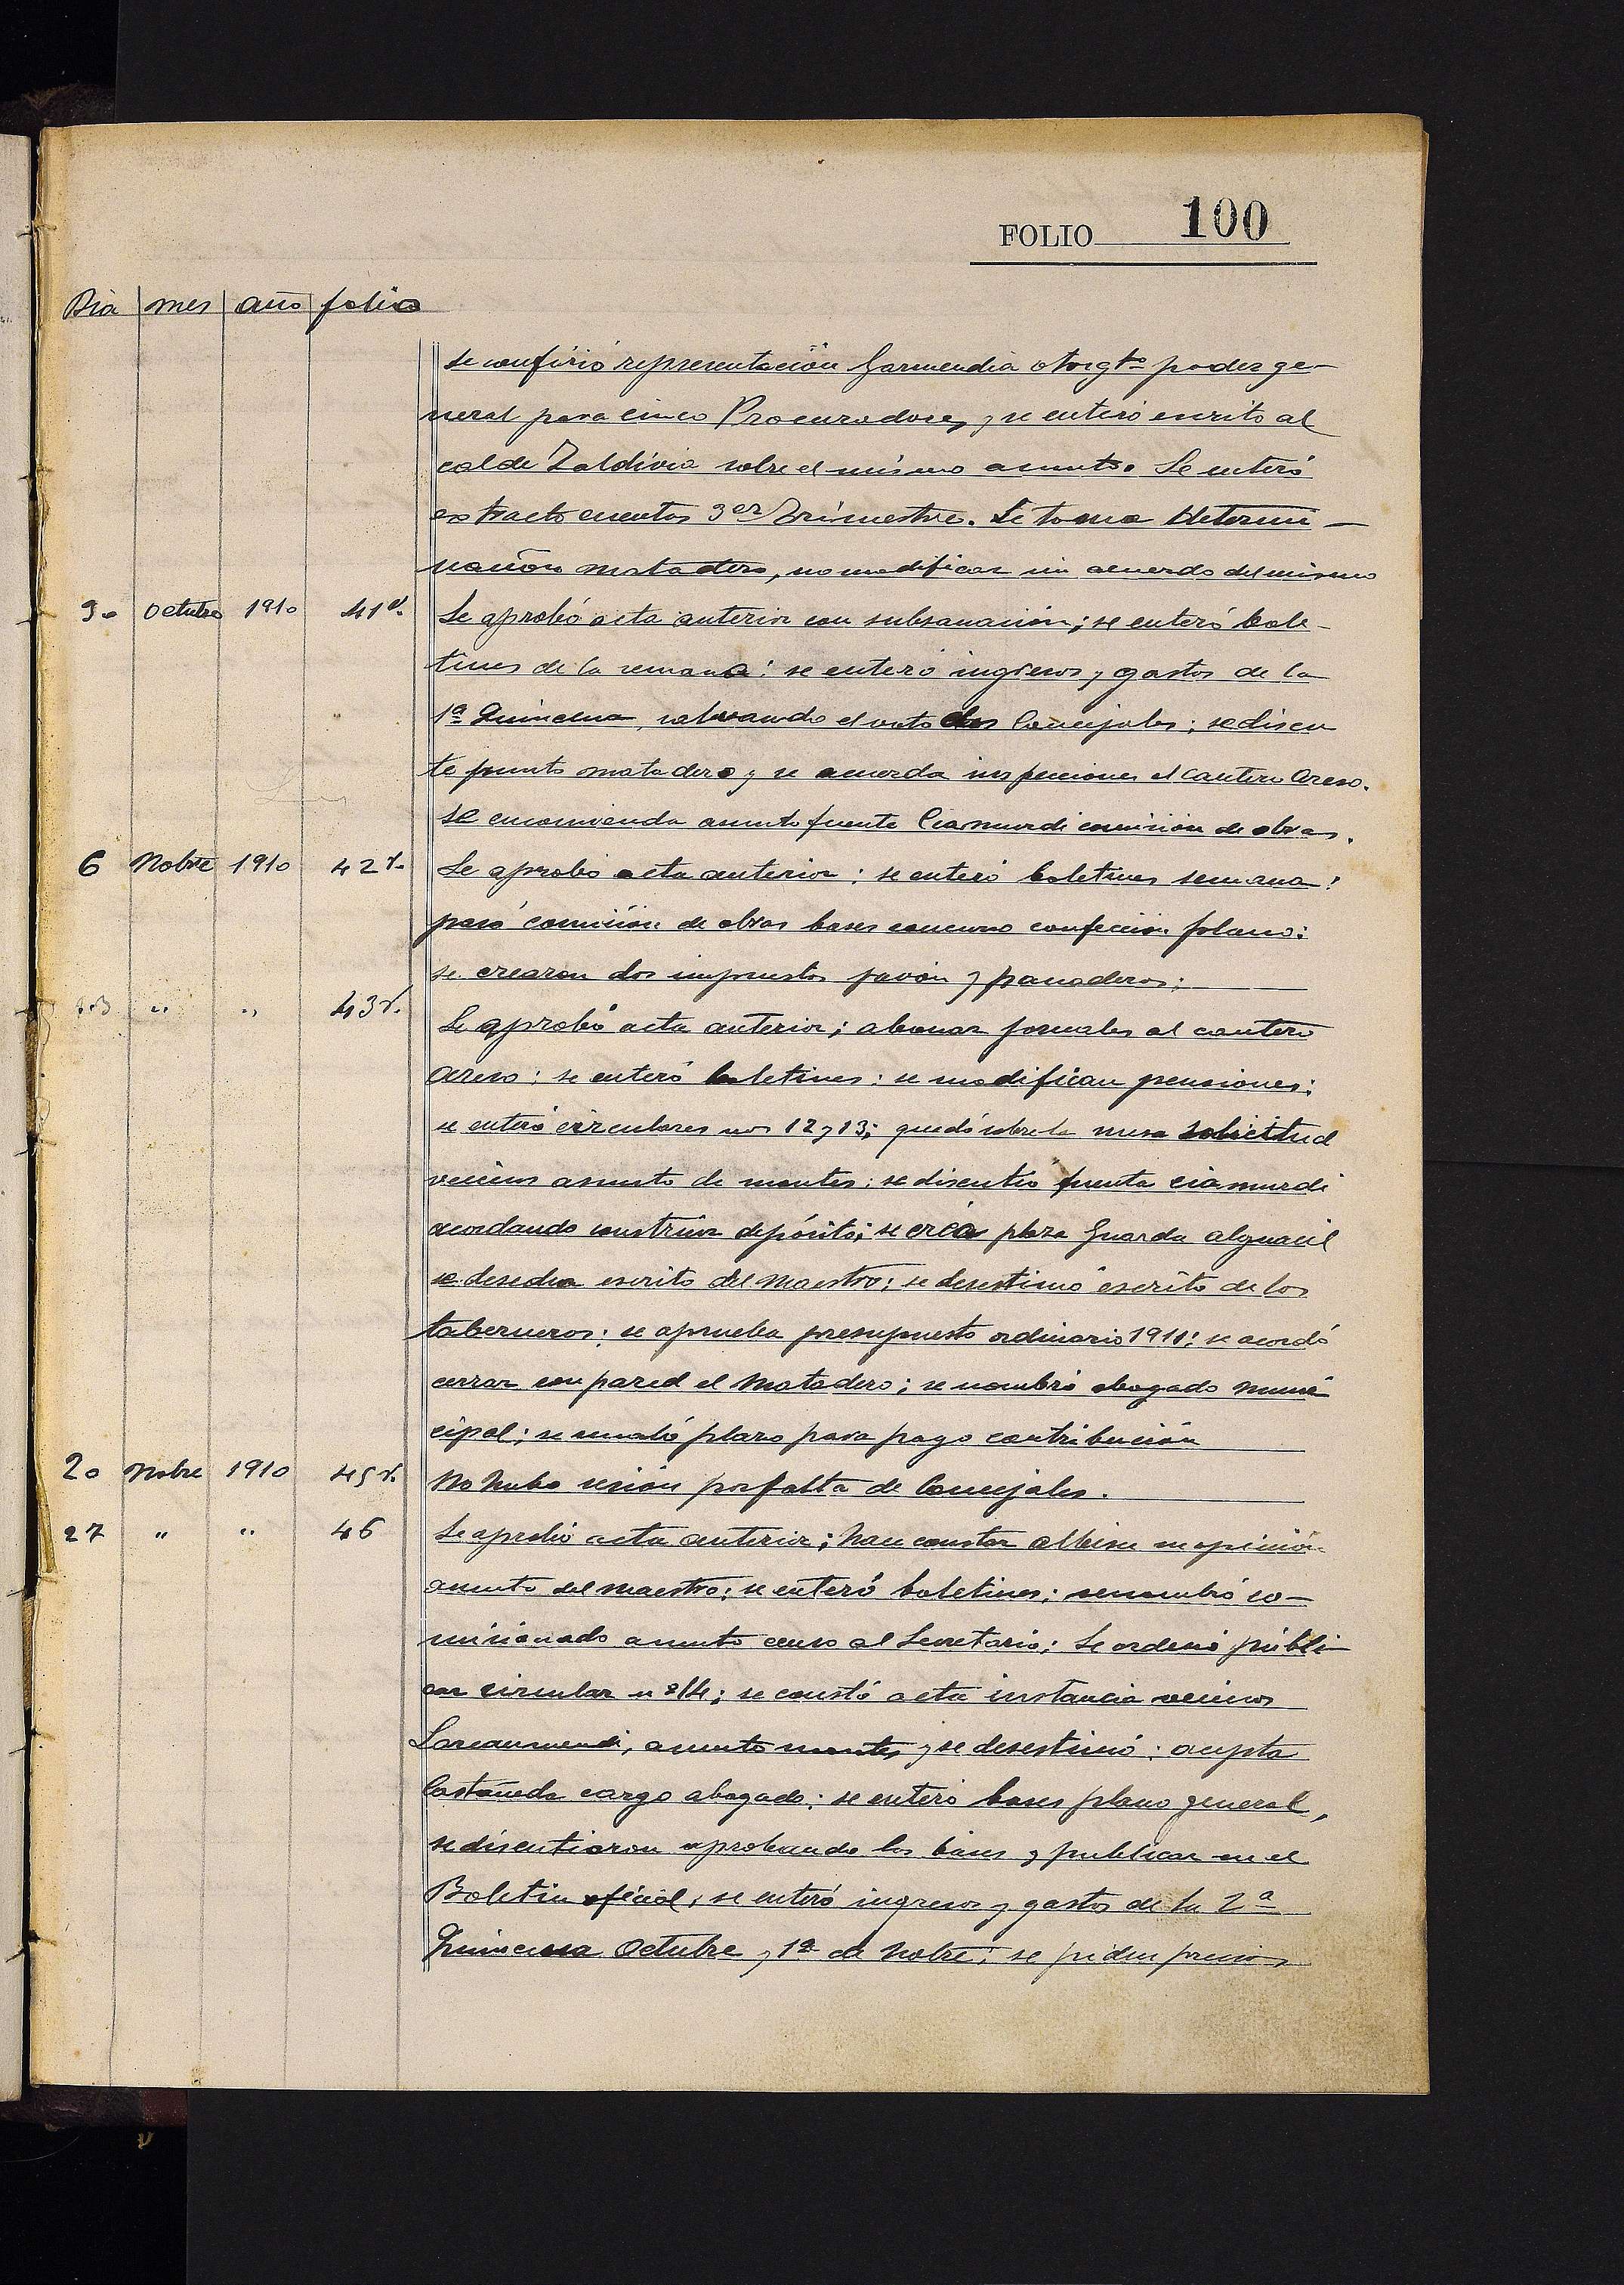 FOLIO 100
Dia mes año folio
se confirió representación Garmendia otorgto poder ge-
neral para cinco Procuradores y se enteró escrito al
calde Zaldivia sobre el mismo asunto. Se enteró
extracto cuentas 3er Trimestre. Se toma determi-
nación matadero, no modificar un acuerdo del mismo
30 Octubre 1910 41v. Se aprobó acta anterior con subsanación; se enteró bole-
tines de la semana: se enteró ingresos y gastos de la
1ª Quincena, salvando el voto dos Concejales; se discu
te punto matadero y se acuerda inspeccione el cantero Areso.
Se encomienda asunto fuente Ciamurdi comisión de obras.
6 Nobre 1910 42v. Se aprobó acta anterior: se enteró boletines semana:
pasó comisión de obras bases concurso confección plano:
se crearon dos impuestos javón y panaderos:
13 " " 43v. Se aprobó acta anterior; abonar jornales al cantero
Areso: se enteró boletines: se modifican pensiones:
se enteró circulares nos 12 y 13; quedó sobre la mesa solicitud
vecinos asunto de montes: se discutió fuente ciamurdi
acordando construir depósito; se créa plaza Guarda alguacil
se desecha escrito del maestro; se desestimó escrito de los
taberneros; se aprueba presupuesto ordinario 1911: se acordó
cerrar con pared el Matadero; se nombró abogado muni
cipal; se señaló plazo para pago contribución
20 Nobre 1910 45v. No hubo sesión por falta de Concejales.
27 " " 46 Se aprobó acta anterior; hace constar Albisu su opinión
asunto del maestro: se enteró boletines; se nombró co-
misionado asunto censo al Secretario; Se ordenó públi-
car circular nº 14; se constó acta instancia vecinos
Larcaumendi, asunto montes y se desestimó: acepta
Castañeda cargo abogado; se enteró bases plano general,
se discutieron aprobando las bases y publicar en el
Boletin oficial, se enteró ingresos y gastos de la 2ª
Quincena Octubre y 1ª de Nobre; se piden precios